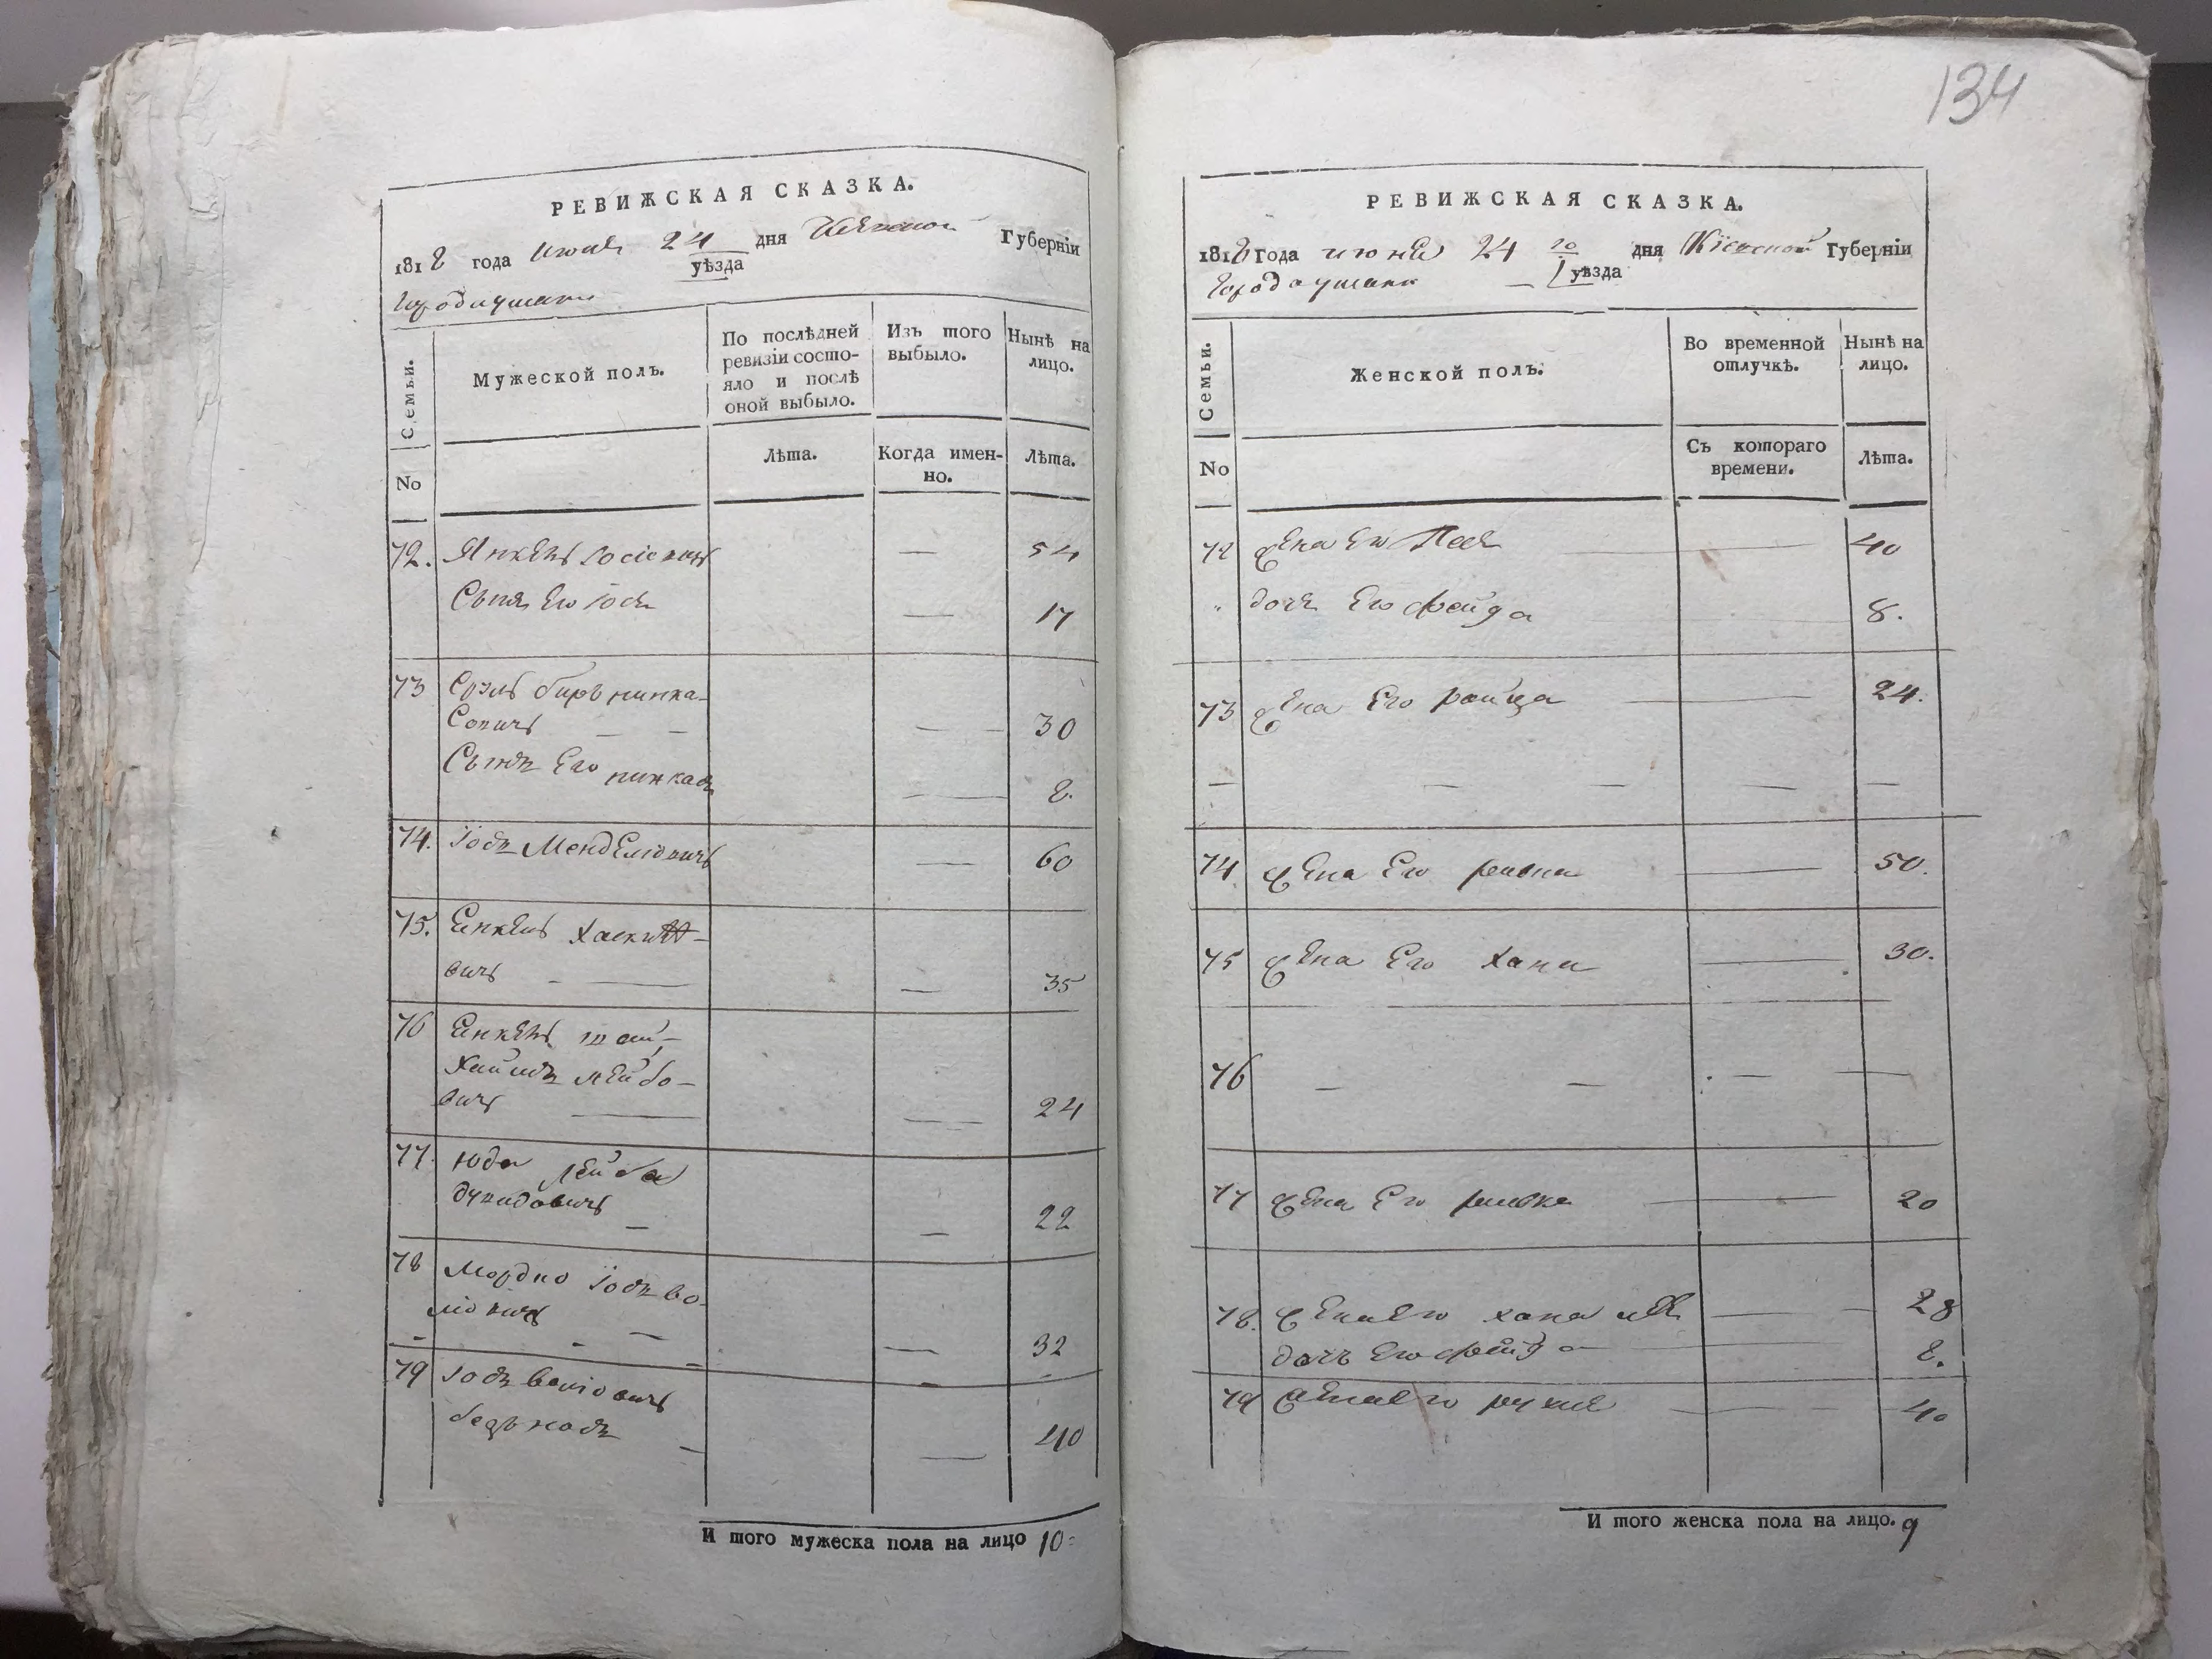 134
РЕВИЖСКАЯ СКАЗКА.
1818 года июня 24 дня Кіевской Губерніи
уѣзда
города уманя
Семьи.
Мужеской полъ.
По послѣдней ревизіи состо-
яло и послѣ оной выбыло.
Изъ того выбыло.
Нынѣ на лицо.
No
Лѣта.
Когда имен-
но.
Лѣта.
72. Янкель Іосіовичъ — 54
Сынъ Его Іось — 17
73 Сруль беръ пинка-
совичъ — — — 30
Сынъ Его пинкасъ — 8.
74. Іось Менделіовичъ — 60
75. Енкель
вичъ — — 35
76 Енкель шай-
Хаимъ лейбо-
вичъ — — 24
77. Юда лейба
— — 22
78 Мордко Іось во-
— — 32
79 Іось
— — 40
И того мужеска пола на лицо 10
РЕВИЖСКАЯ СКАЗКА.
1818 Года июня 24 го дня Кіевской Губерніи
уѣзда
Города уманя —
Семьи.
Женской полъ.
Во временной отлучкѣ.
Нынѣ на лицо.
No
Съ котораго времени.
Лѣта.
72 жена Его Песя — 40
" дочь Его фейга — 8.
73 жена Его Раица — 24.
— — — — —
74 жена Его ривка — 50.
75 жена Его Хана — 30.
76 — — — —
77 жена Его ривка — 20
78. жена Его хана — 28
дочь Его фейга — 8.
79 жена Его рухля — 40
И того женска пола на лицо. 9